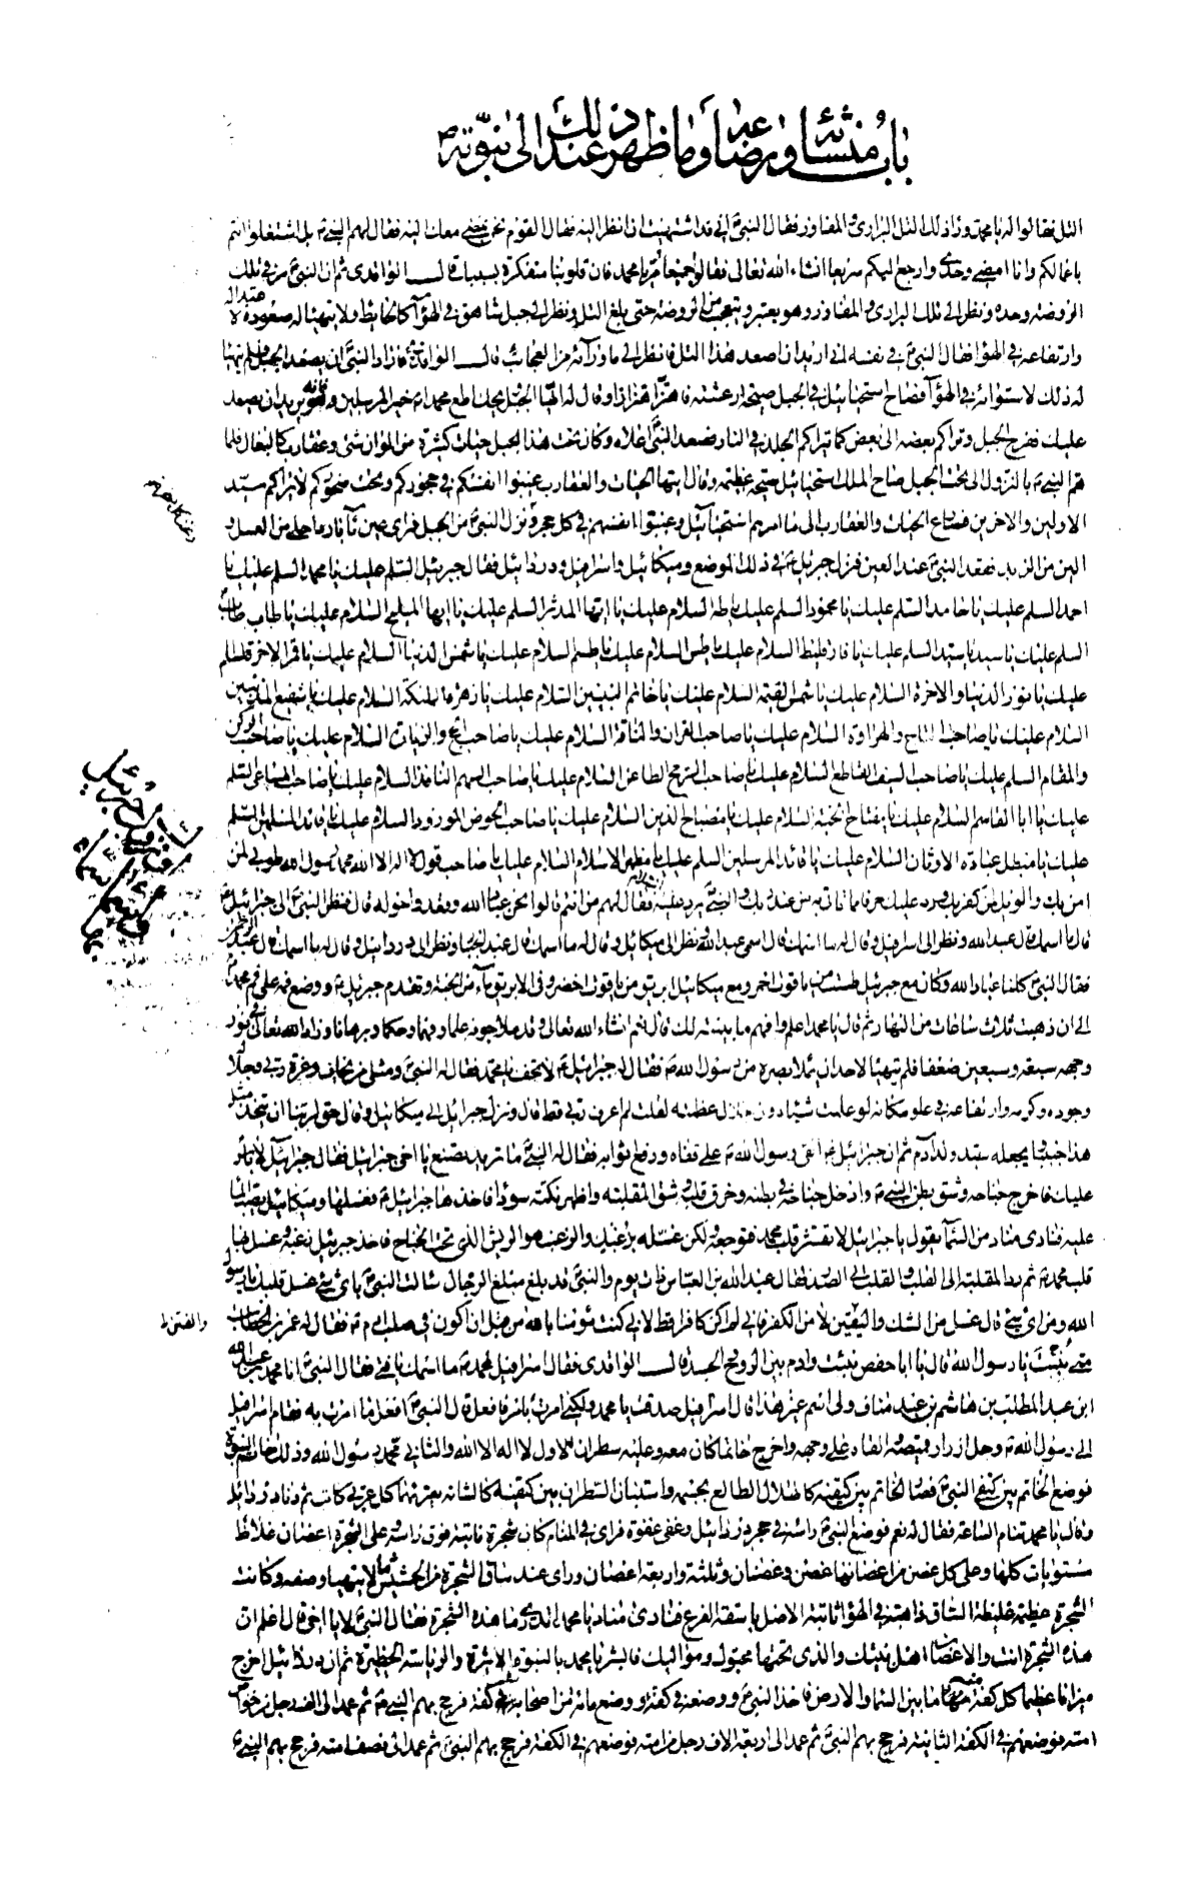 باب منشائه ورضاعه وما ظهر عند ذلك الى نبوته ص
التل فقالوا له يا محمد وراء ذلك التل البراري والمفاوز فقال النبي ص اني قد اشتهيت ان انظر اليه فقال القوم نحن نمضي معك اليه فقال لهم النبي ص بل اشتغلوا انتم
باعمالكم وانا امضي وحدي وارجع اليكم سريعا انشاء الله تعالى فقالوا جميعا مر يا محمد فان قلوبنا متفكرة بسببك قال الواقدي ثم ان النبي ص مر في تلك
الروضة وحده ونظر الى تلك البراري والمفاوز وهو يعتبر ويتعجب من الروضة حتى بلغ التل ونظر الى جبل شاهق في الهواء كالحايط ولا يتهيأ له صعوده لاعتداله
وارتفاعه في الهواء فقال النبي ص في نفسه اني اريد ان اصعد هذا التل فانظر الى ما ورائه من العجائب قال الواقدي فاراد النبي ص ان يصعد الجبل فلم يتهيأ
له ذلك لاستوائه في الهواء فصاح استحيائيل في الجبل صيحة ارعشته فاهتز اهتزازا وقال له ايها الجبل ويحك اطع محمدا ص خير المرسلين فانه يريد ان يصعد
عليك ففرح الجبل وتراكم بعضه الى بعض كما يتراكم الجلد في النار فصعد النبي ص اعلاه وكان تحت هذا الجبل حيات كثيرة من الوان شتى وعقارب كالبغال فلما
هم النبي ص بالنزول الى تحت الجبل صاح الملك استحيائيل صيحة عظيمة وقال ايتها الحيات والعقارب غيبوا انفسكم في حجوركم وتحت صخوركم لا يراكم سيد
الاولين والاخرين فسارع الحيات والعقارب الى ما امرهم استحيائيل وغيبوا انفسهم في كل حجر ونزل النبي ص من الجبل فراى عين ماء بارد احلى من العسل و
الين من الزبد فقعد النبي ص عند العين فنزل جبرئيل ع في ذلك الموضع وميكائيل واسرافيل ودردائيل فقال جبرئيل السلم عليك يا محمد السلم عليك يا
احمد السلم عليك يا حامد السلم عليك يا محمود السلم عليك يا طه السلام عليك يا ايها المدثر السلم عليك يا ايها المليح السلام عليك يا طاب طاب
السلم عليك يا سيد يا سيد السلم عليك يا فارقليط السلام عليك يا طس السلام عليك يا طسم السلام عليك يا شمس الدنيا السلام عليك يا قمر الاخرة السلم
عليك يا نور الدنيا والاخرة السلام عليك يا شمس القيمة السلام عليك يا خاتم النبيين السلام عليك يا زهرة الملئكة السلام عليك يا شفيع المذنبين
السلام عليك يا صاحب التاج والهراوة السلام عليك يا صاحب القران والناقة السلام عليك يا صاحب الحج والزيارة السلام عليك يا صاحب الركن
والمقام السلم عليك يا صاحب السيف القاطع السلام عليك يا صاحب الرمح الطاعن السلام عليك يا صاحب السهم النافذ السلام عليك يا صاحب المساعي السلم
عليك يا ابا القاسم السلام عليك يا مفتاح الجنة السلام عليك يا مصباح الدين السلام عليك يا صاحب الحوض المورود السلام عليك يا قائد المسلمين السلم
عليك يا مبطل عبادة الاوثان السلام عليك يا قائد المرسلين السلم عليك يا مظهر الاسلام السلام عليك يا صاحب قول لا اله الا الله محمد رسول الله طوبى لمن
امن بك والويل لمن كفر بك ورد عليك حرفا مما تاتي به من عند ربك والنبي ص يرد عليه فقال لهم من انتم قالوا نحن عباد الله وقعدوا حوله قال فنظر النبي ص الى جبرائيل ع
قال ما اسمك قال عبد الله ونظر الى اسرافيل وقال له ما اسمك قال اسمي عبد الله ونظر الى ميكائيل وقال له ما اسمك قال عبد الجبار ونظر الى دردائيل وقال له ما اسمك قال عبد الرحمن
فقال النبي ص كلنا عباد الله وكان مع جبرئيل طست من ياقوت احمر ومع ميكائيل ابريق من ياقوت اخضر وفي الابريق ماء من الجنة وتقدم جبرئيل ع ووضع فمه على فم محمد ص
الى ان ذهبت ثلاث ساعات من النهار ثم قال يا محمد اعلم وافهم ما بينته لك قال نعم انشاء الله تعالى وقد ملأ جوفه علما وفهما وحكما وبرهانا وزاد الله تعالى في نور
وجهه سبعة وسبعين ضعفا فلم يتهيأ لاحد ان يملأ بصره من رسول الله ص فقال له جبرائيل ع لا تخف يا محمد فقال له النبي ص ومثلي من يخاف وعزة ربي وجلاله
وجوده وكرمه وارتفاعه في علو مكانه لو علمت شيئا دون جلال عظمته لقلت لم اعرف ربي قط قال ونزل جبرائيل الى ميكائيل وقال حق لربنا ان يتخذ مثل
هذا حبيبا ويجعله سيد ولد آدم ثم ان جبرائيل ع القى رسول الله ص على قفاه ورفع اثوابه فقال له النبي ص ما تريد تصنع يا اخي جبرائيل فقال جبرائيل لا باس
عليك فاخرج جناحه وشق بطن النبي ص وادخل جناحه في بطنه وخرق قلبه وشق المقلبة واظهر نكتة سوداء فاخذها جبرائيل ع فغسلها وميكائيل يصب الماء
عليه فنادى مناد من السماء يقول يا جبرائيل لا تقشر قلب محمد فتوجعه ولكن اغسله بزغبك والزغب هو الريش الذي تحت الجناح فاخذ جبرئيل زغبة وغسل بها
قلب محمد ص ثم رد المقلبة الى القلب والقلب الى الصدر فقال عبد الله بن العباس ذات يوم والنبي ص قد بلغ مبلغ الرجال سالت النبي ص باي شيء غسل قلبك يا رسول
الله ومن اي شيء قال غسل من الشك واليقين لا من الكفر فاني لم اكن كافرا قط لاني كنت مؤمنا بالله من قبل ان اكون في صلب ادم ع فقال له عمر بن الخطاب
متى نبئت يا رسول الله قال يا ابا حفص نبئت وادم بين الروح والجسد قال الواقدي فقال اسرافيل لمحمد ص ما اسمك يا فتى فقال النبي ص انا محمد بن عبد الله
ابن عبد المطلب بن هاشم بن عبد مناف ولي اسم غير هذا قال اسرافيل صدقت يا محمد ولكني امرت بامر فافعل قال النبي ص افعل ما امرت به فقام اسرافيل
الى رسول الله ص وحل ازرار قميصه والقاه على وجهه واخرج خاتما كان معه وعليه سطران الاول لا اله الا الله والثاني محمد رسول الله وذلك خاتم النبوة
فوضع الخاتم بين كتفي النبي ص فصار الخاتم بين كتفيه كالهلال الطالع بجسمه واستبان السطران بين كتفيه كالشامة يقرئهما كل عربي كاتب ثم دنا دردائيل
وقال يا محمد تنام الساعة فقال له نعم فوضع النبي ص راسه في حجر دردائيل وغفى غفوة فراى في المنام كان شجرة نابتة فوق راسه وعلى الشجرة اغصان غلاظ
مستويات كلها وعلى كل غصن من اغصانها غصن وغصنان وثلثة واربعة اغصان وراى عند ساق الشجرة من الحشيش ما لا يتهيأ وصفه وكانت
الشجرة عظيمة غليظة الساق ذاهبة في الهواء ثابتة الاصل باسقة الفرع فنادى مناد يا محمد اتدري ما هذه الشجرة فقال النبي ص لا يا اخي قال اعلم ان
هذه الشجرة انت والاغصان اهل بيتك والذي تحتها محبوك ومواليك فابشر يا محمد بالنبوة والاثرة والرئاسة الخطيرة ثم ان دردائيل اخرج
ميزانا عظيما كل كفة منه ما بين السماء والارض فاخذ النبي ص ووضعه في كفة ووضع مائة من اصحابه في كفة فرجح بهم النبي ص ثم عمد الى الف رجل من خواص
امته فوضعهم في الكفة الثانية فرجح بهم النبي ص ثم عمد الى اربعة الاف رجل من امته فوضعهم في الكفة فرجح بهم النبي ص ثم عمد الى نصف امته فرجح بهم النبي ص